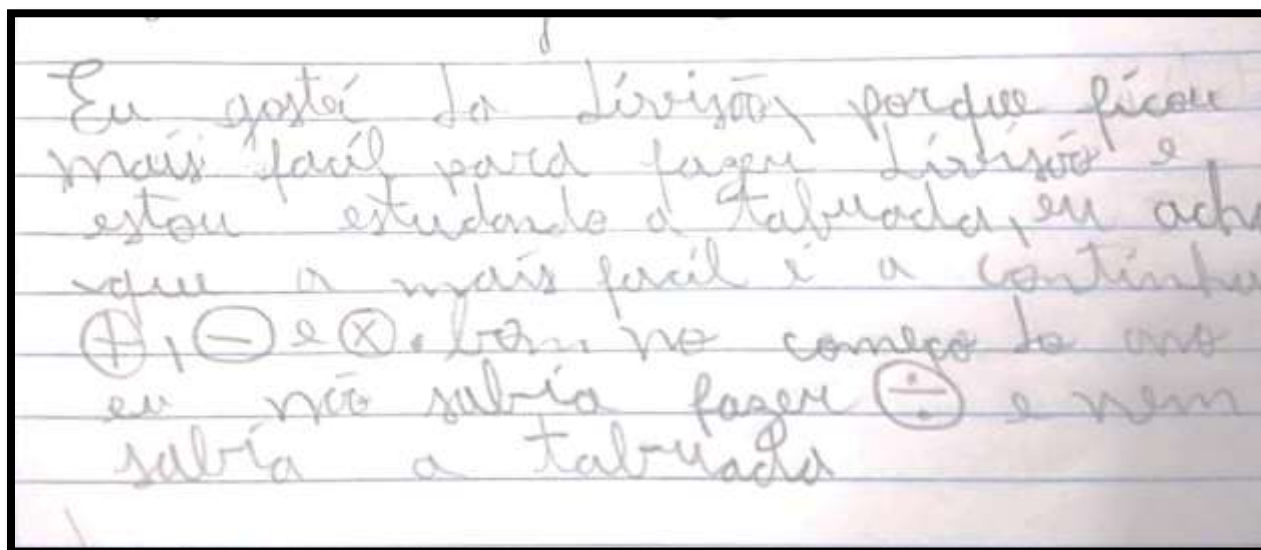 Eu gostei da divisão, porque ficou
mais facil para fazer divisão e
estou estudando a tabuada, eu acho
que a mais facil é a continha
⊕, ⊖ e ⊗. bom no começo do ano
eu não sabia fazer ÷ e nem
sabia a tabuada